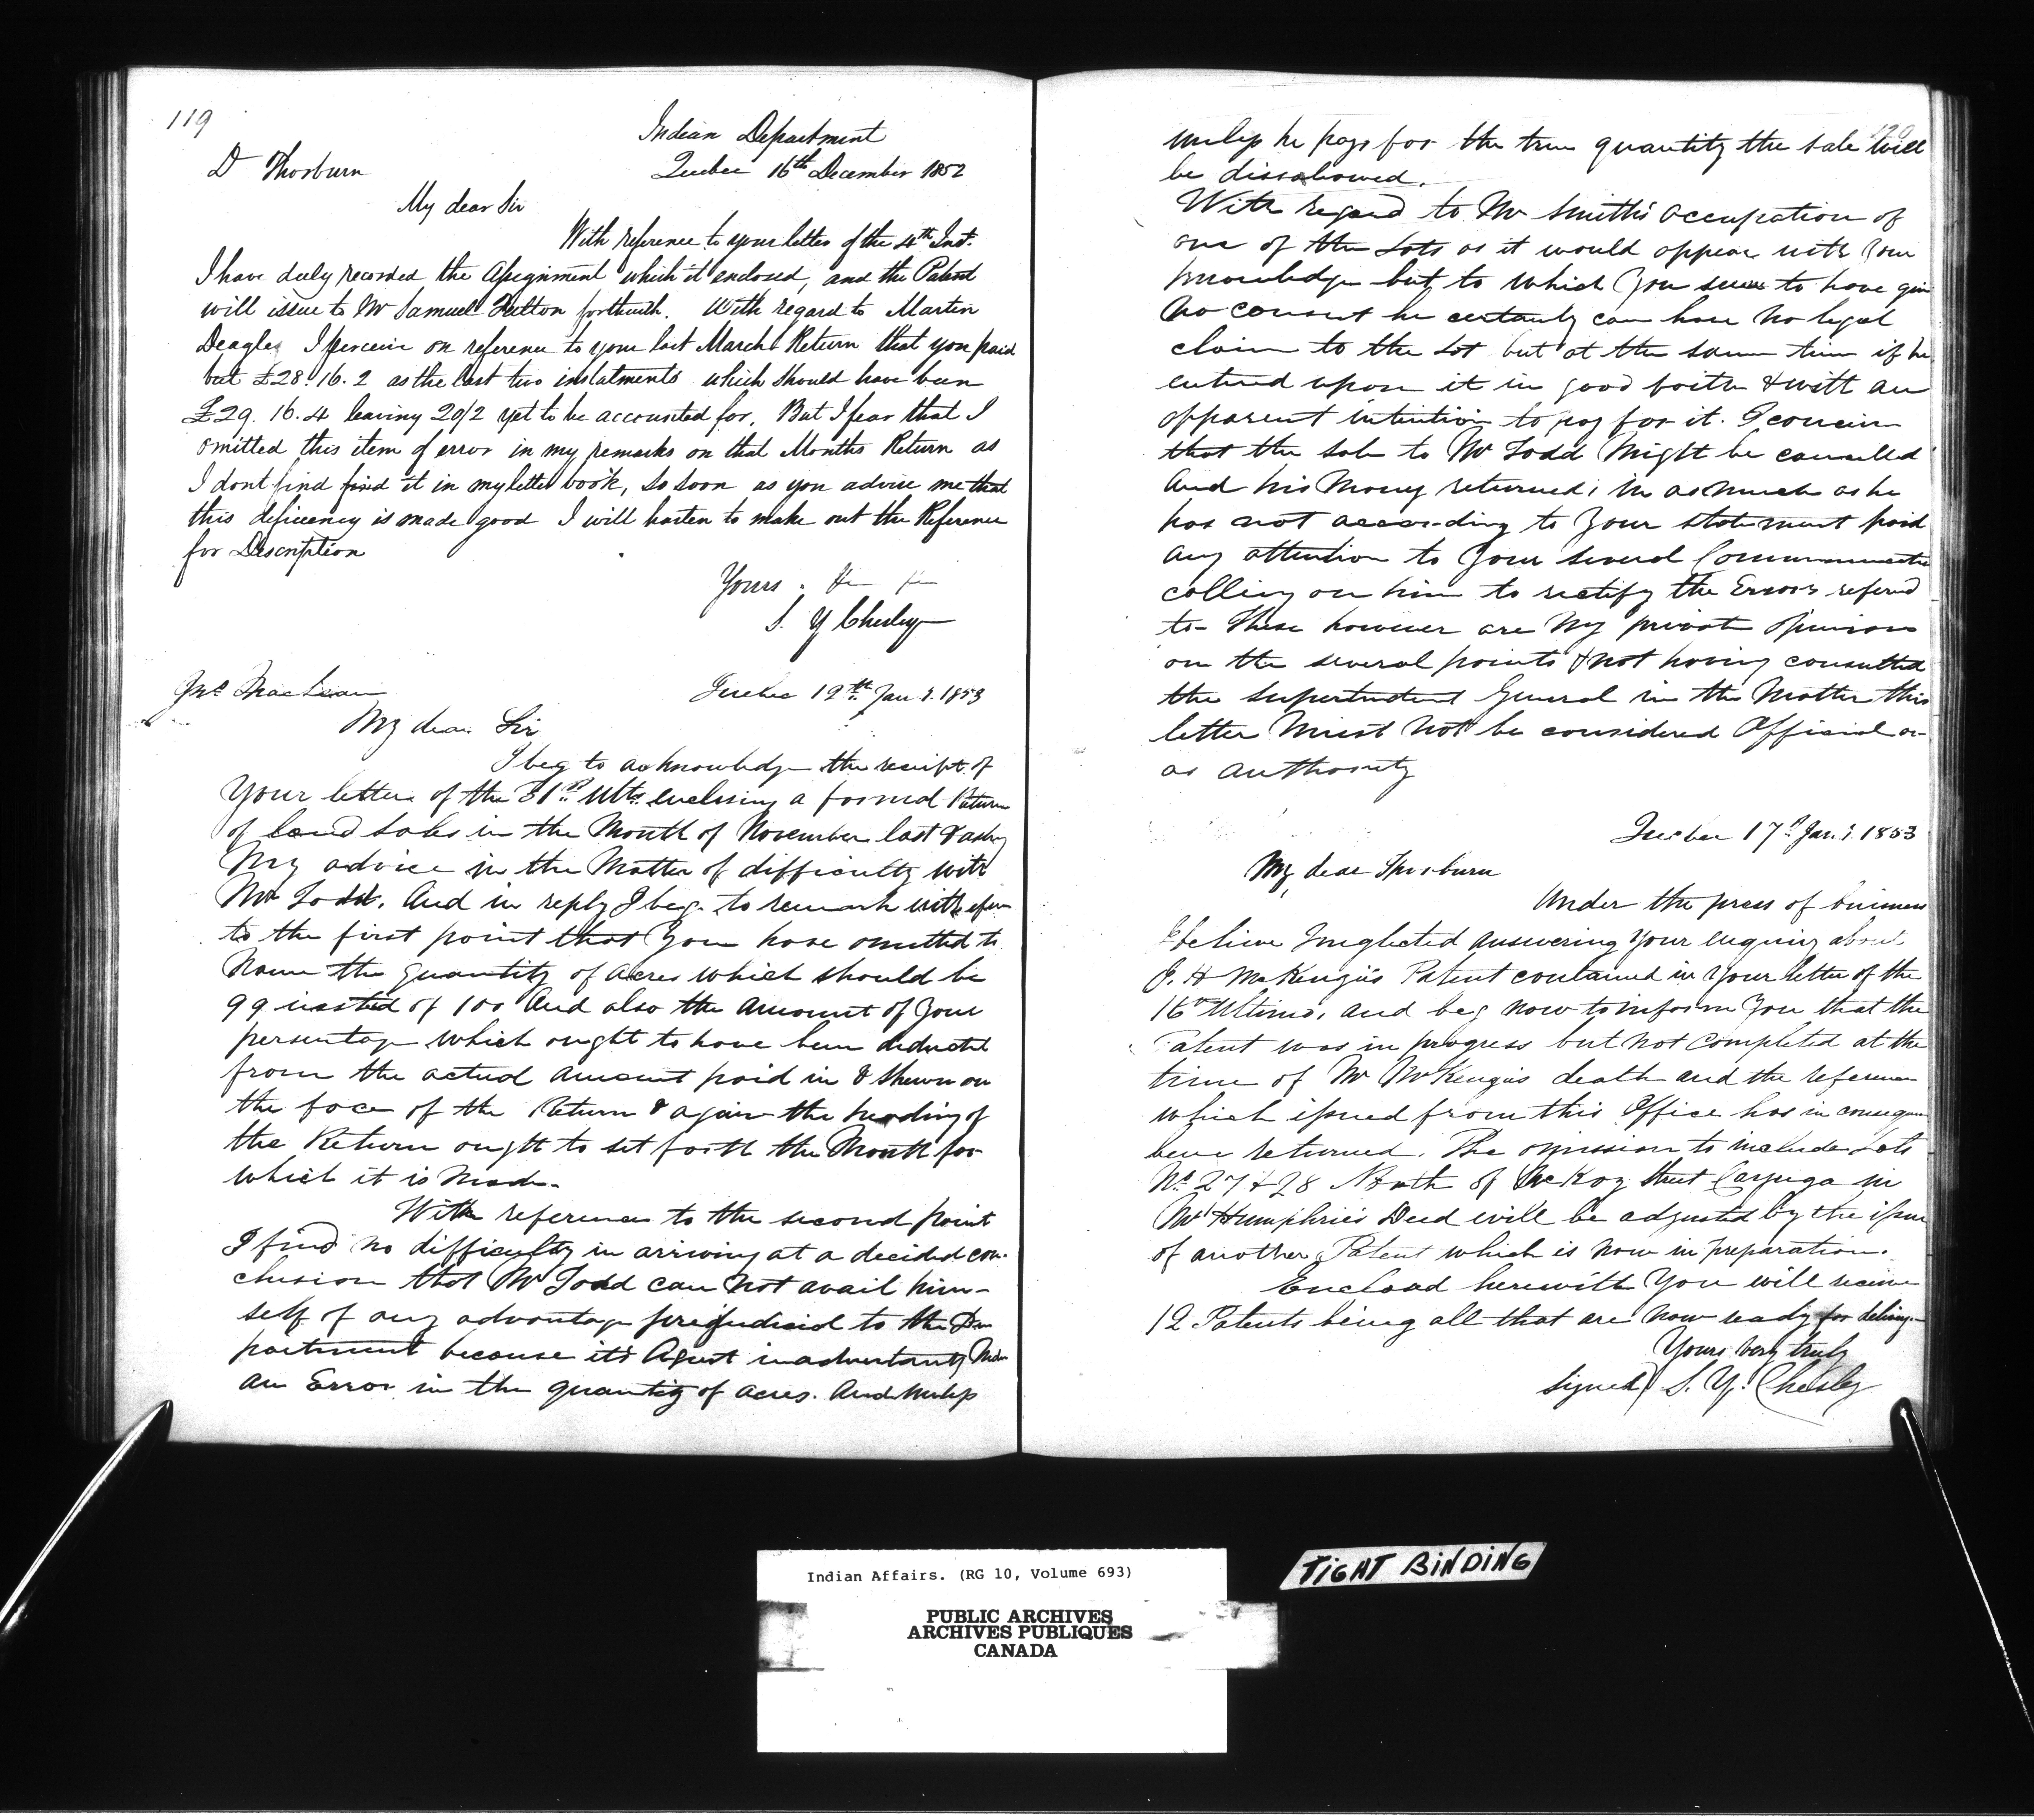 119
Indian Department
Quebec 16th December 1852
D Thorburn
My dear Sir
With reference to your letter of the 4th Inst.
I have duly recorded the Assignment which it enclosed, and the Patent
will issue to Mr Samuel Fulton forthwith. With regard to Martin
Deagle I perceive on reference to your last March Return that you paid
but £28.16.2 as the last two instalments which should have been
£29.16.4 leaving 20/2 yet to be accounted for. But I fear that I
omitted this item of error in my remarks on that Months Return as
I dont find find it in my letter book, so soon as you advise me that
this deficiency is made good I will hasten to make out the Reference
for Description
Yours
S. Y Chesley
Jno MacLean
Quebec 12th Jany. 1853
My dear Sir
I beg to acknowledge the receipt of
Your letter of the 31st Ulto. enclosing a formal Return
of land sales in the Month of November last & asking
My advice in the Matter of difficulty with
Mr Todd. And in reply I beg to remark with
to the first point that You have omitted to
Name the quantity of acres which should be
99 insted of 100 And also the amount of Your
persentage which ought to have been deducted
from the actual amount paid in & shewn on
the face of the Return & again the heading of
the Return ought to set forth the Month for
which it is Made.
With reference to the second point
I find no difficulty in arriving at a decided con-
clusion that Mr Todd can not avail him-
self of any advantage prejudicial to the De
partment because its Agent inadvertantly Made
an Error in the quantity of acres. And unless
120
unless he pays for the true quantity the sale will
be dissalowed.
With regard to Mr Smith's occupation of
one of the Lots as it would appear with Your
knowledge but to which You seem to have given
no consent he certainly can have No legal
claim to the Lot but at the same time if he
entered upon it in good faith & with an
apparent intention to pay for it. I conceive
that the sale to Mr Todd Might be cancelled
And his Money returned, in as Much as he
has not according to Your statement paid
any attention to Your several Communications
calling on him to rectify the Errors refered
to- These however are My private Opinions
on the several points & not having consulted
the Supertendent General in the Matter this
letter Must Not be considered Official or
as authority
Quebec 17th Jany. 1853
My dear Thorburn
Under the press of business
I believe I neglected answering Your enquiry about
J. H McKenzie's Patent contained in Your letter of the
16th Ultimo, and beg now to inform You that the
Patent was in progress but Not Completed at the
time of Mr McKenzie's death and the reference
which issued from this Office has in consequence
been returned. The omission to include Lots
No. 27 & 28 North of McKay Street Cayuga in
Mr Humphries Deed will be adjusted by the issue
of another Patent which is now in preparation.
Enclosed herewith You will receive
12 Patents being all that are now ready for delivery.
Yours very truly
Signed S. Y. Chesley
Indian Affairs. (RG 10, Volume 693)
PUBLIC ARCHIVES
ARCHIVES PUBLIQUES
CANADA
TIGHT BINDING